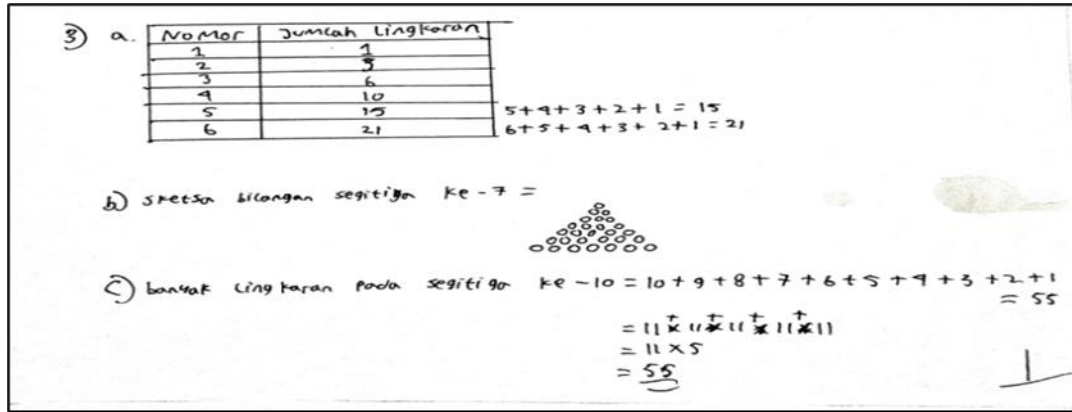 3) a. Nomor Jumlah Lingkaran
1 1
2 3
3 6
4 10
5 15 5+4+3+2+1 = 15
6 21 6+5+4+3+2+1 = 21
b) sketsa bilangan segitiga ke-7 =
c) banyak lingkaran pada segitiga ke-10 = 10+9+8+7+6+5+4+3+2+1
= 55
= 11 + 11 + 11 + 11 + 11
= 11 x 5
= 55
1